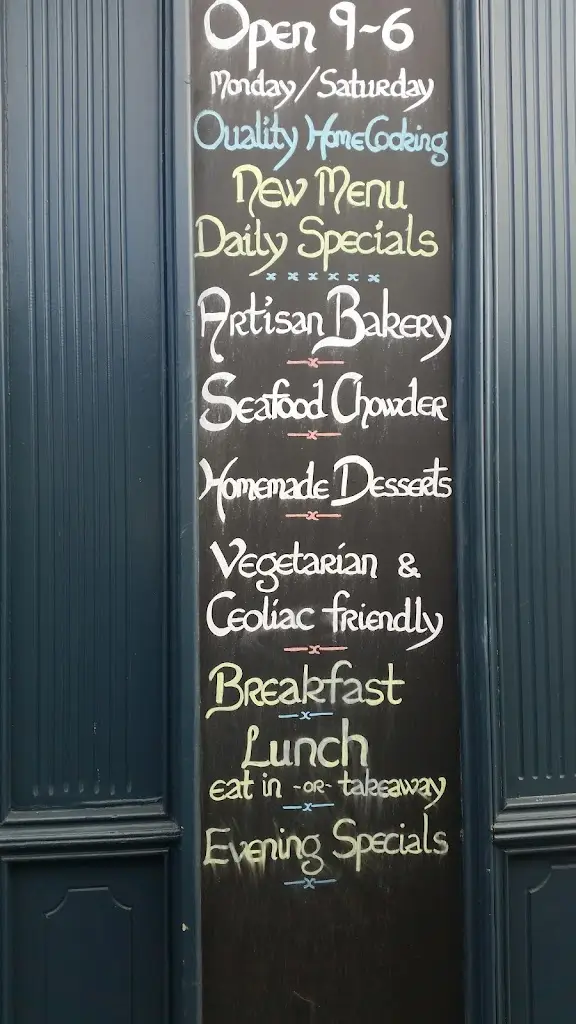 Open 9~6
Monday/Saturday
Quality Home Cooking
New Menu
Daily Specials
Artisan Bakery
Seafood Chowder
Homemade Desserts
Vegetarian &
Ceoliac friendly
Breakfast
Lunch
eat in -OR- takeaway
Evening Specials